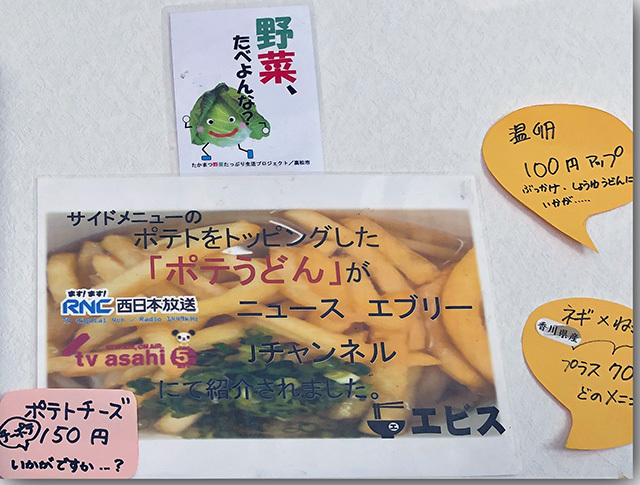 野菜、
たべよんな?
たかまつ野菜たっぷり生活プロジェクト/高松市
サイドメニューの
ポテトをトッピングした
「ポテうどん」が
ます!ます!
RNC 西日本放送
ニュース エブリー
tv asahi 5
Jチャンネル
にて紹介されました。
エビス
ポテトチーズ
150円
いかがですか…?
温卵
100円アップ
ぶっかけ、しょうゆうどんに
いかが.....
ネギ×
香川県産
プラス70
どのメニ